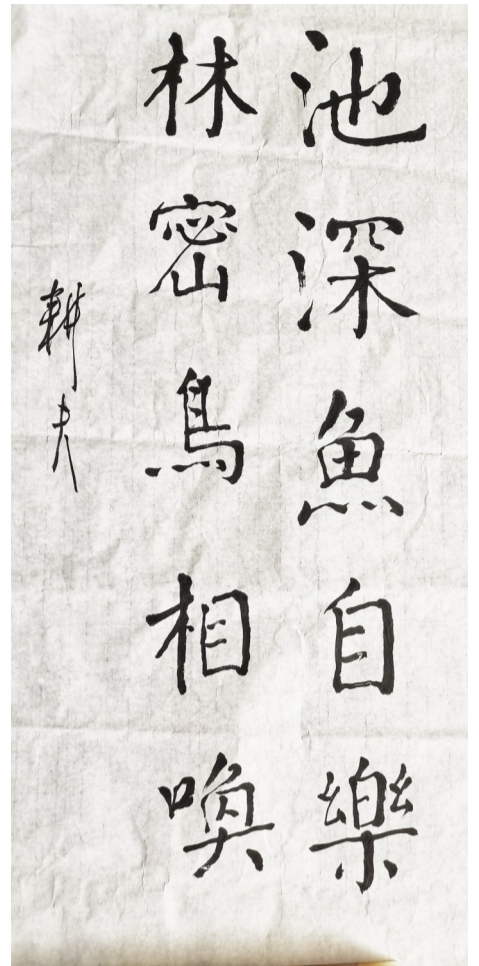 池深魚自樂
林密鳥相喚
耕夫